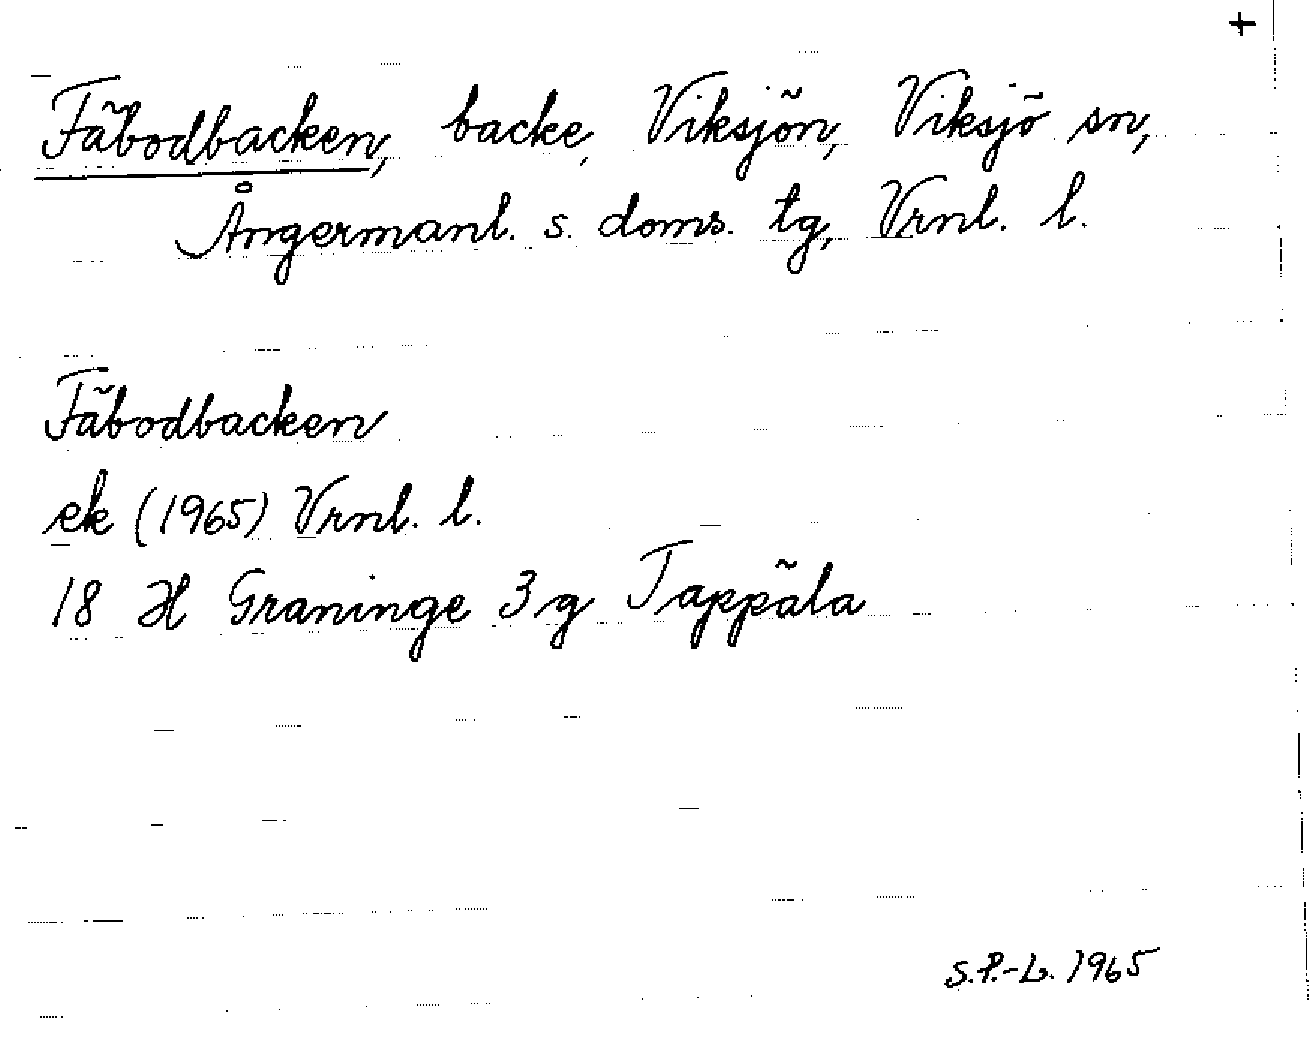 +
Fäbodbacken, backe, Viksjön, Viksjö sn,
Ångermanl. s. doms. tg, Vrnl. l.
Fäbodbacken
ek (1965) Vrnl. l.
18 H Graninge 3 g Tappäla
S.P.-L. 1965